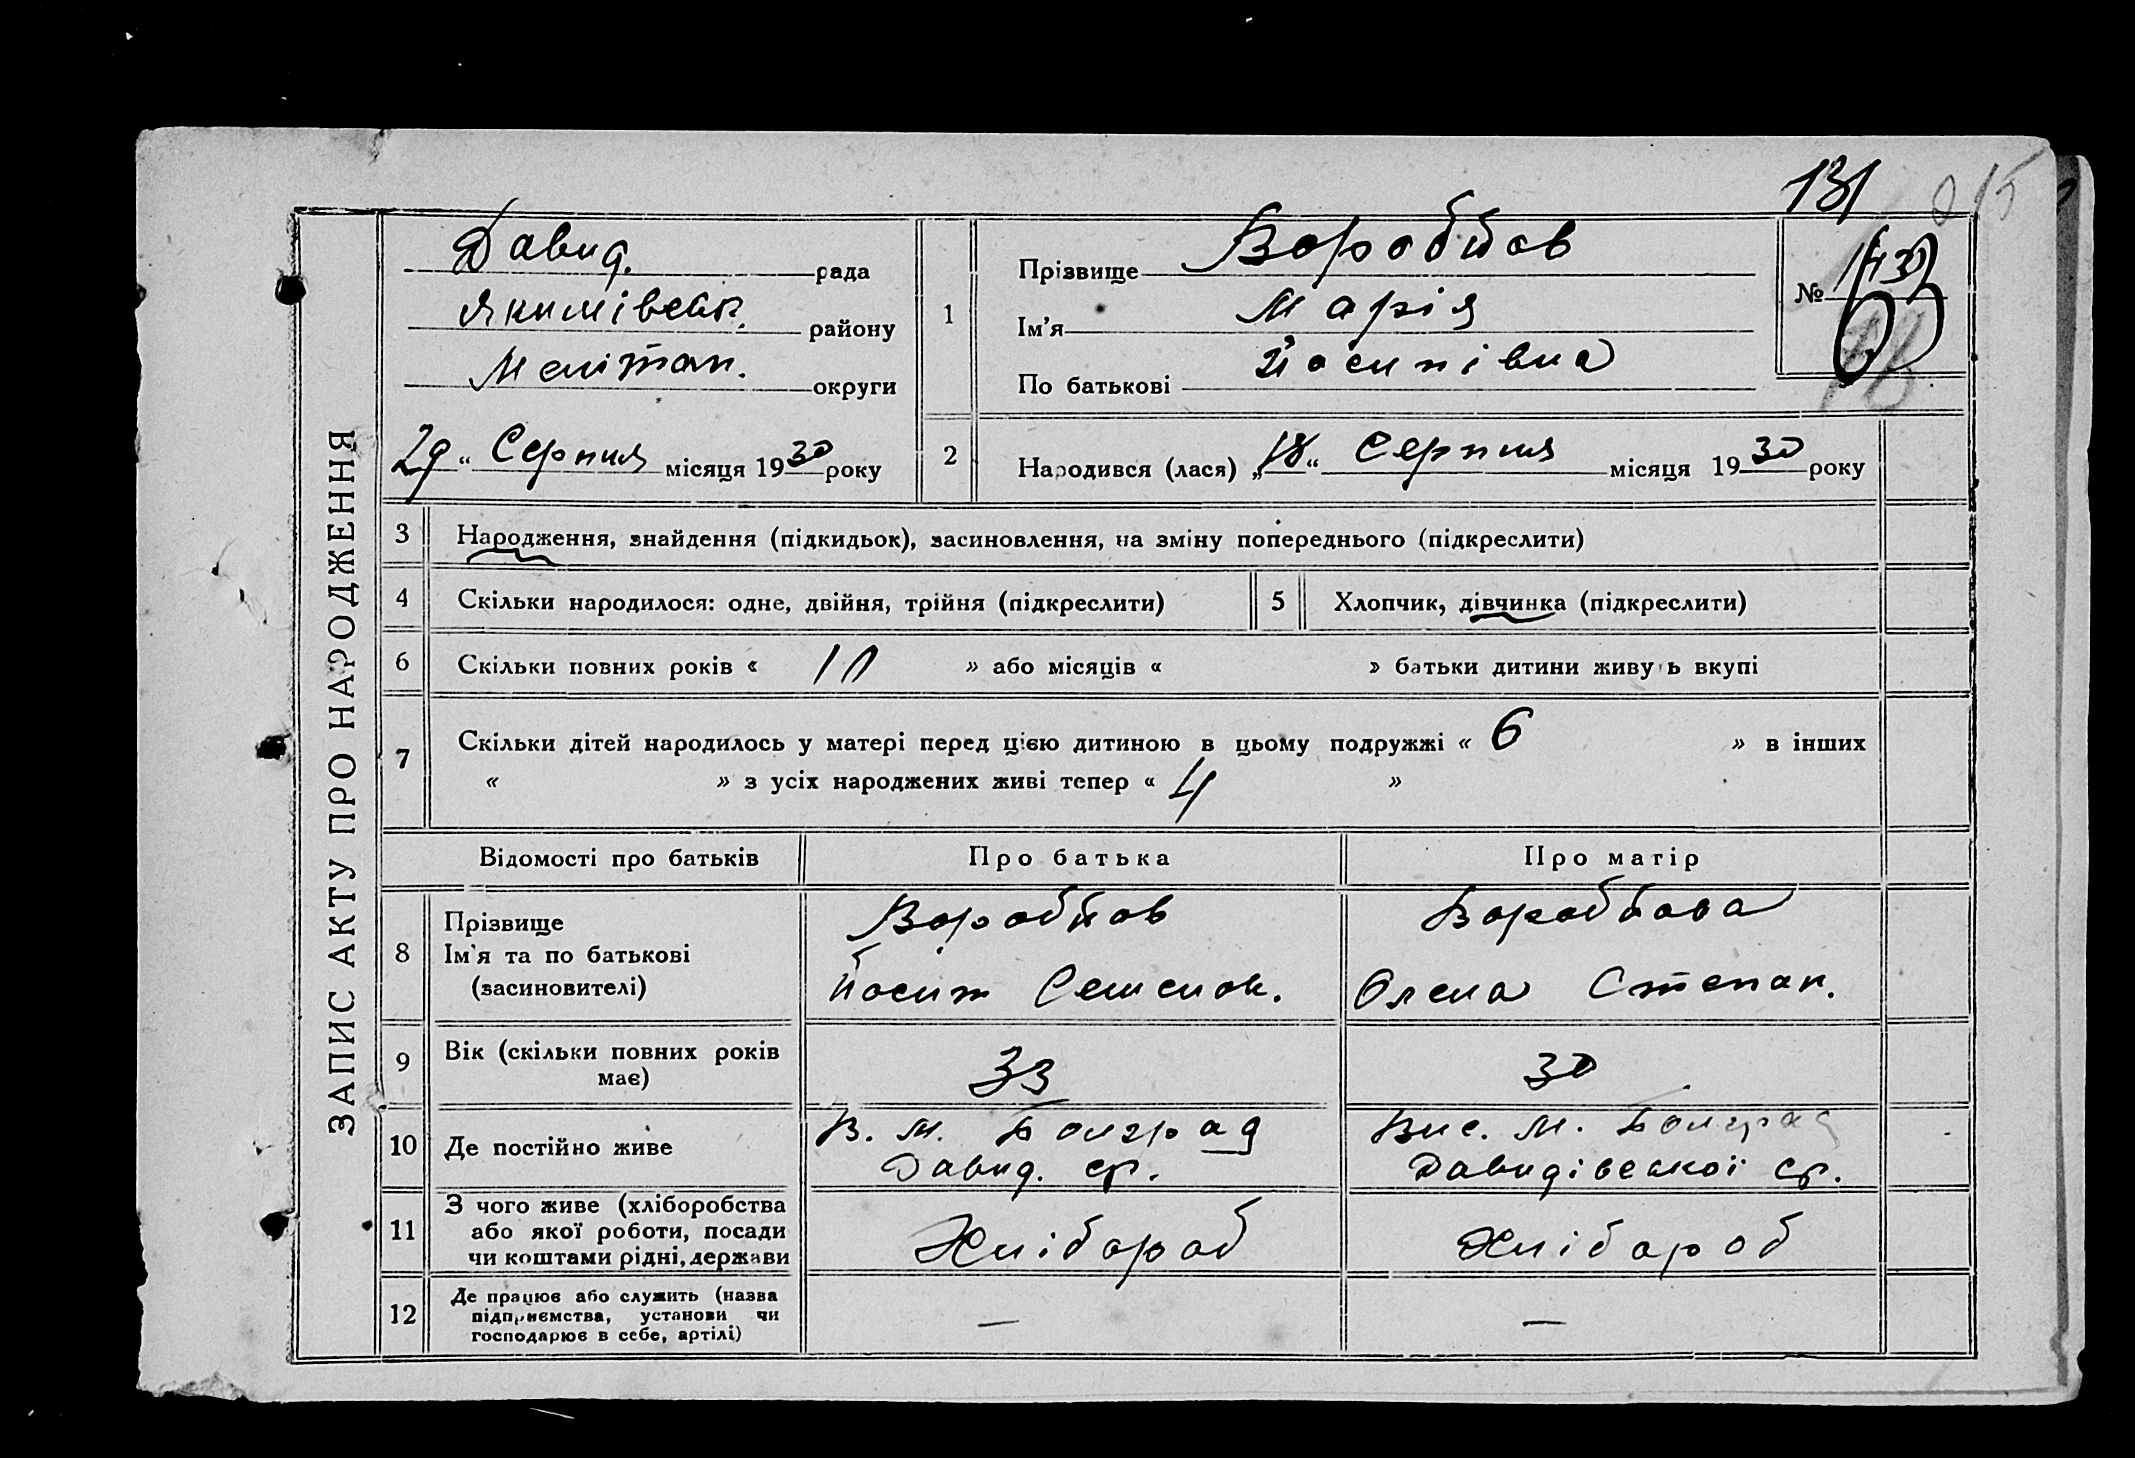 131
215
Давид. рада
Якимівськ. району
Меліtоп. округи
29 “ Серпня місяця 1930 року
1
Прізвище Воробйов
Ім’я Марія
По батькові Йосипівна
№
63
2
Народився (лася) „18“ Серпня місяця 1930 року
ЗАПИС АКТУ ПРО НАРОДЖЕННЯ
3 Народження, знайдення (підкидьок), засиновлення, на зміну попереднього (підкреслити)
4 Скільки народилося: одне, двійня, трійня (підкреслити)
5 Хлопчик, дівчинка (підкреслити)
6 Скільки повних років « 10 » або місяців « » батьки дитини живуть вкупі
7 Скільки дітей народилось у матері перед цією дитиною в цьому подружжі « 6 » в інших
« » з усіх народжених живі тепер « 4 »
Відомості про батьків Про батька Про матір
8
Прізвище
Ім’я та по батькові
(засиновителі)
Воробйов
Йосип Семенов.
Воробйова
Олена Степан.
9
Вік (скільки повних років
має)
33
30
10 Де постійно живе
В. М. Болград
Давид. ср.
Вис. М. Болград
Давидівської ср.
11
З чого живе (хліборобства
або якої роботи, посади
чи коштами рідні, держави
Хлібороб
Хлібороб
12
Де працює або служить (назва
підприємства, установи чи
господарює в себе, артілі)
—
—